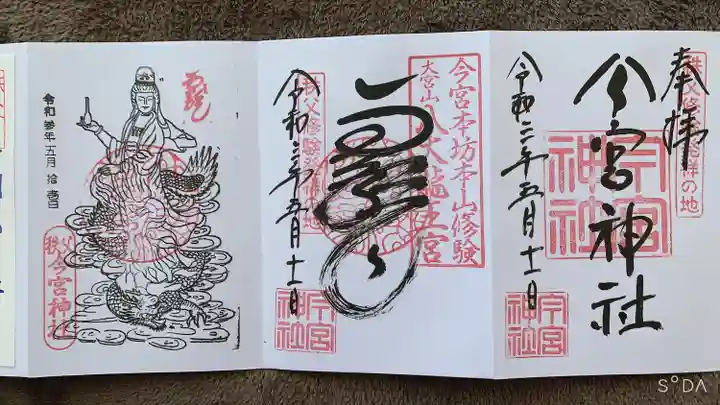 奉拝
秩父修験発祥の地
今宮神社
今宮神社
令和三年五月十一日
今宮神社
今宮本坊本山修験
大宮山八大龍王宮
秩父修験発祥の地
令和三年五月十一日
今宮神社
令和参年五月拾壱日
秩父今宮神社
SODA